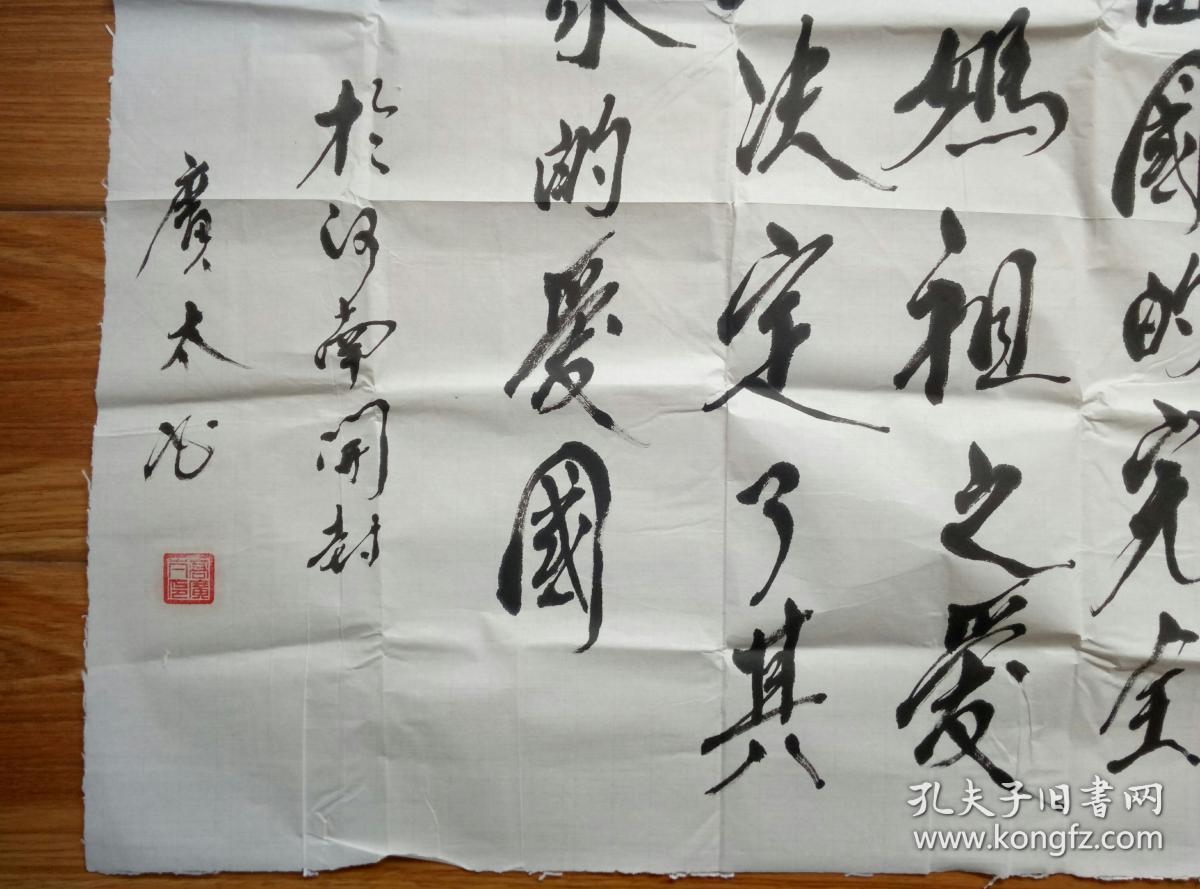 國的完全
媽祖之愛
决定了其
家的愛國
於河南開封
廣太
孔夫子旧书网
www.kongfz.com